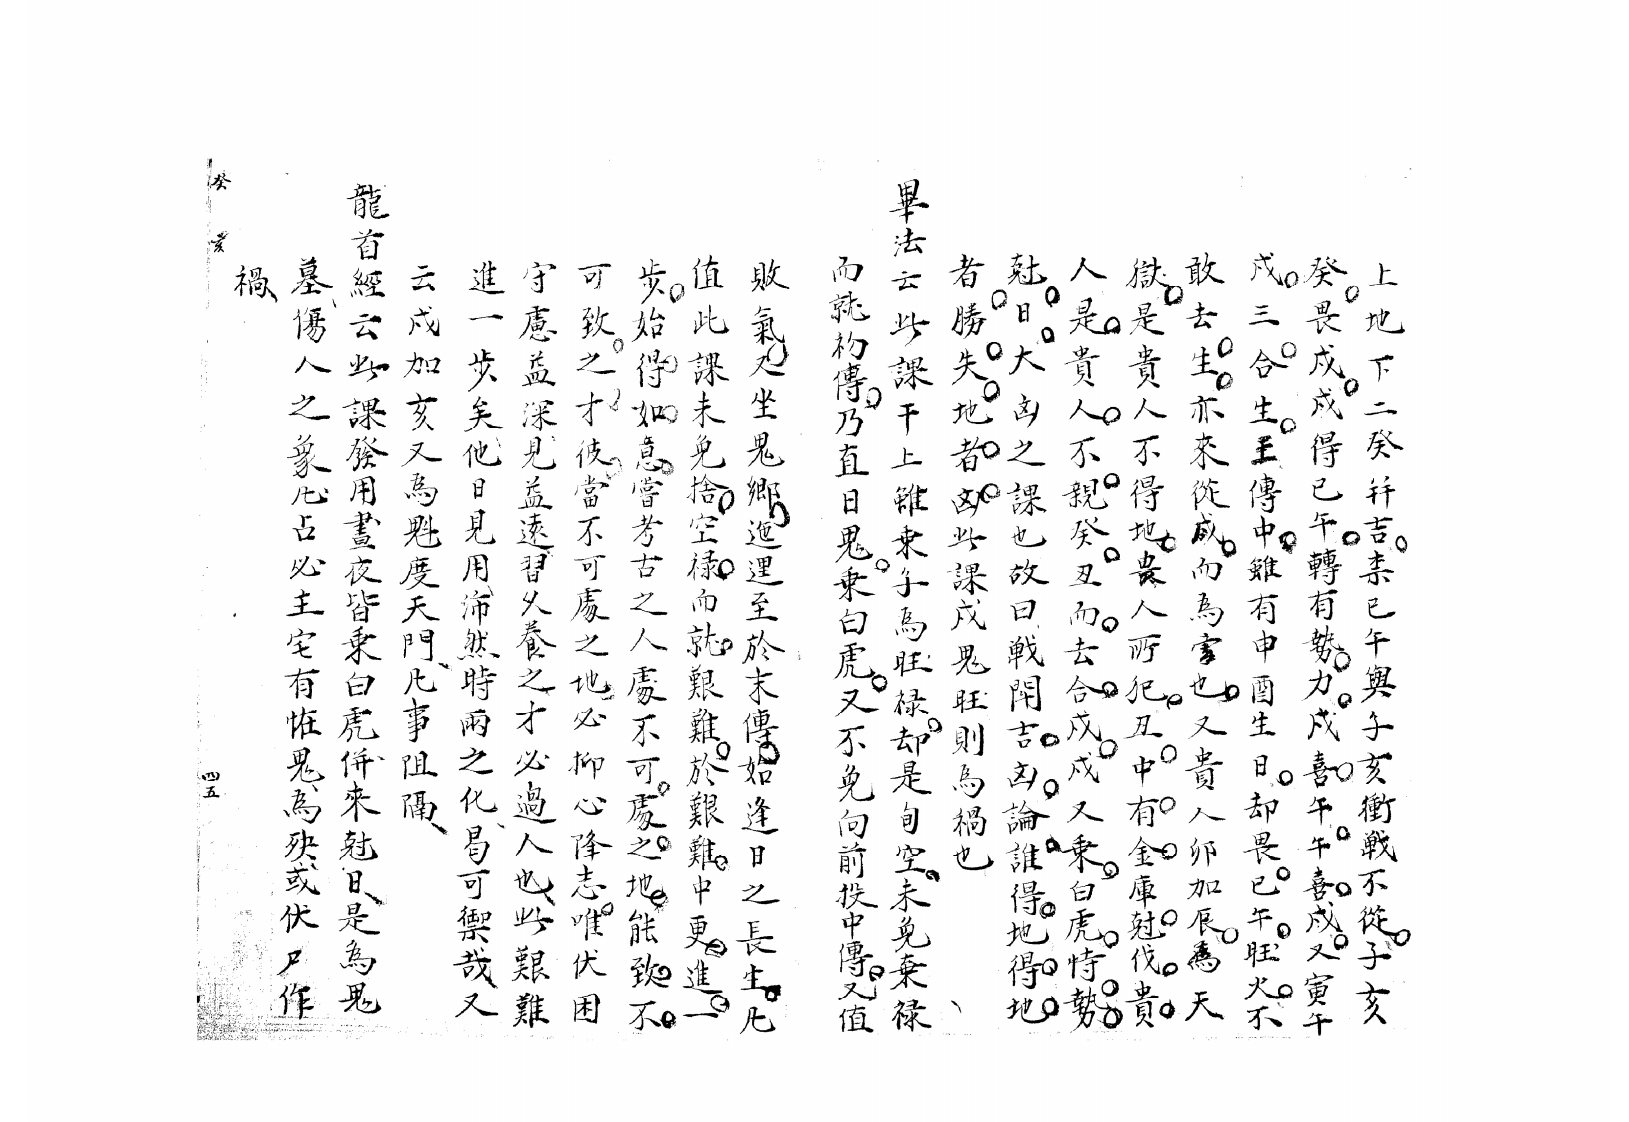 上地下二癸幷吉柰已午與子亥衝戰不從子亥
癸畏戌戌得已午轉有勢力戌喜午午喜戌又寅午
戌三合生王傳中雖有申酉生日却畏已午旺火不
敢去生亦來從戌而爲害也又貴人卯加辰爲天
獄是貴人不得地畏人所犯丑中有金庫尅伐貴
人是貴人不親癸丑而去合戌戌又乗白虎恃勢
尅日大凶之課也故曰戰鬥吉凶論誰得地得地
者勝失地者凶此課戌鬼旺則爲禍也
畢法云此課干上雖乗子爲旺禄却是旬空未免棄禄
而就初傳乃直日鬼乗白虎又不免向前投中傳又值
敗氣又坐鬼鄉迤逕至於末傳始逢日之長生凡
值此課未免捨空禄而就艱難於艱難中更進一
步始得如意嘗考古之人處不可處之地能致不
可致之才彼當不可處之地必抑心降志唯伏困
守慮益深見益遠習久養之才必過人也此艱難
進一步矣他日見用沛然時雨之化曷可禦哉又
云戌加亥又爲魁度天門凡事阻隔
龍首經云此課發用晝夜皆乗白虎併來尅日是爲鬼
墓傷人之象凡占必主宅有恠鬼爲殃或伏尸作
禍
癸 亥
四五